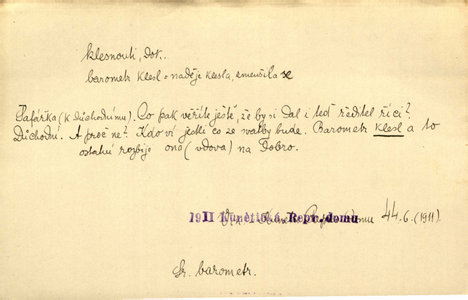 klesnouti, dok..
barometr klesl = naděje klesla, zmenšila se
Tafářka (k důchodnímu). Co pak věříte ještě, že by si dal i teď ředitel říci?
Důchodní. A proč ne? Kdo ví jestli co ze svatby bude. Barometr klesl a to
ostatní rozbije ono (vdova) na Dobro.
1911 Repr. domu 44.6. (1911)
Sr. barometr.